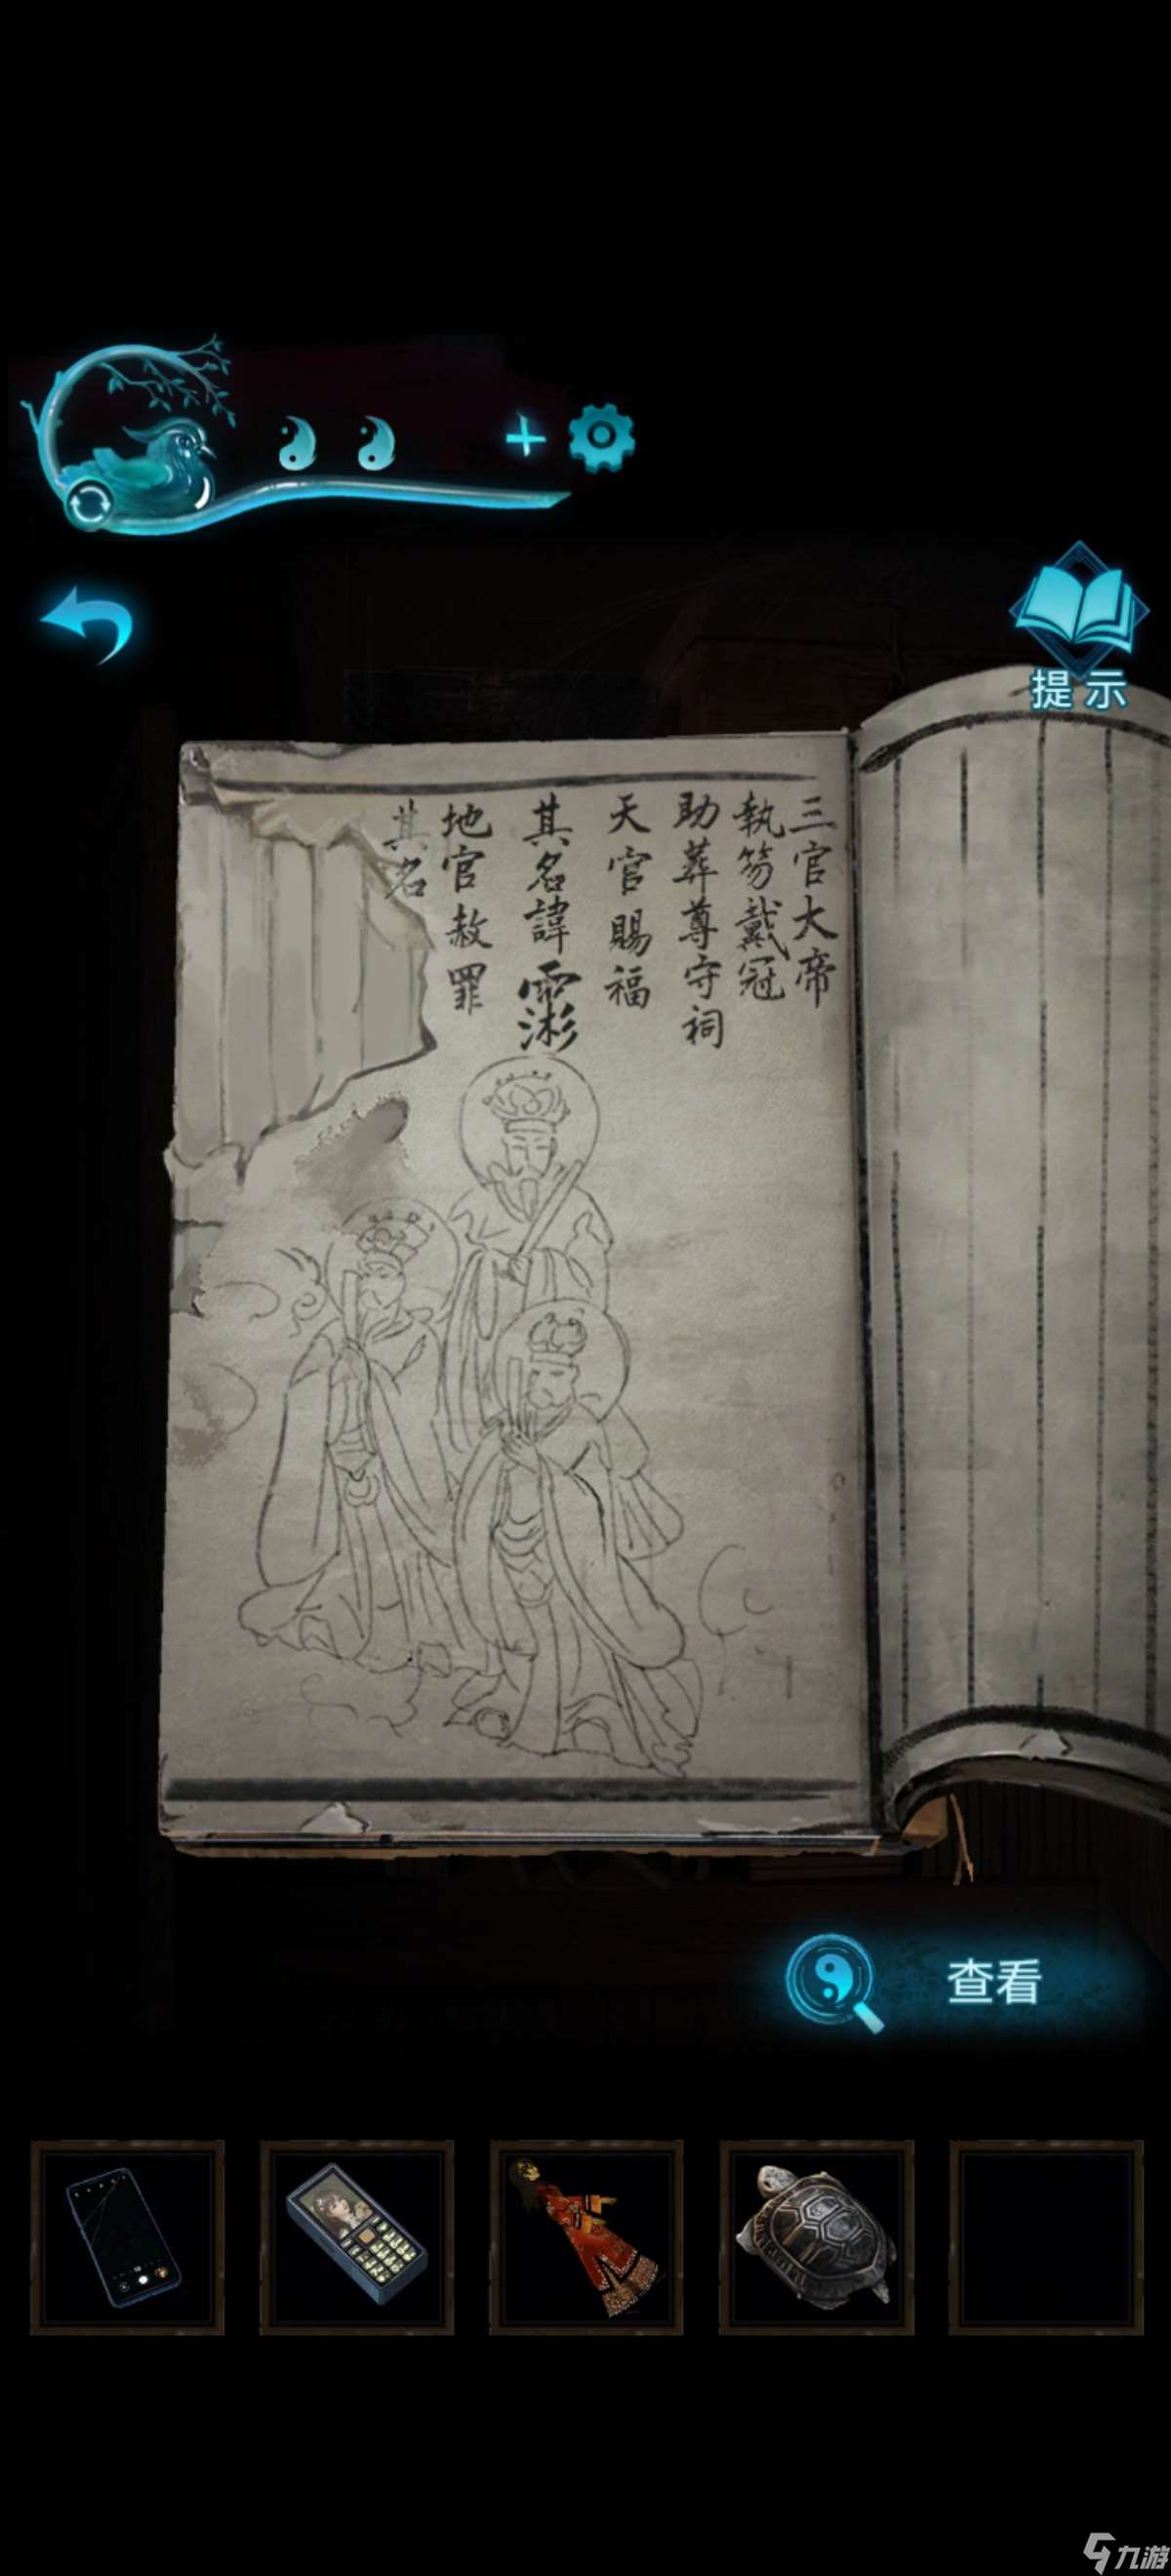 提示
三官大帝
執笏戴冠
助葬尊守祠
天官賜福
其名諱
地官赦罪
其名
查看
九游